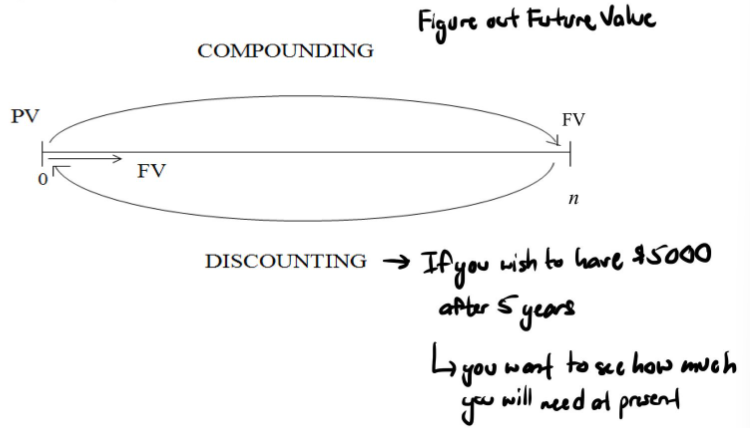 Figure out Future Value
COMPOUNDING
PV
FV
0
FV
n
DISCOUNTING → If you wish to have $5000
after 5 years
↳ you want to see how much
you will need at present